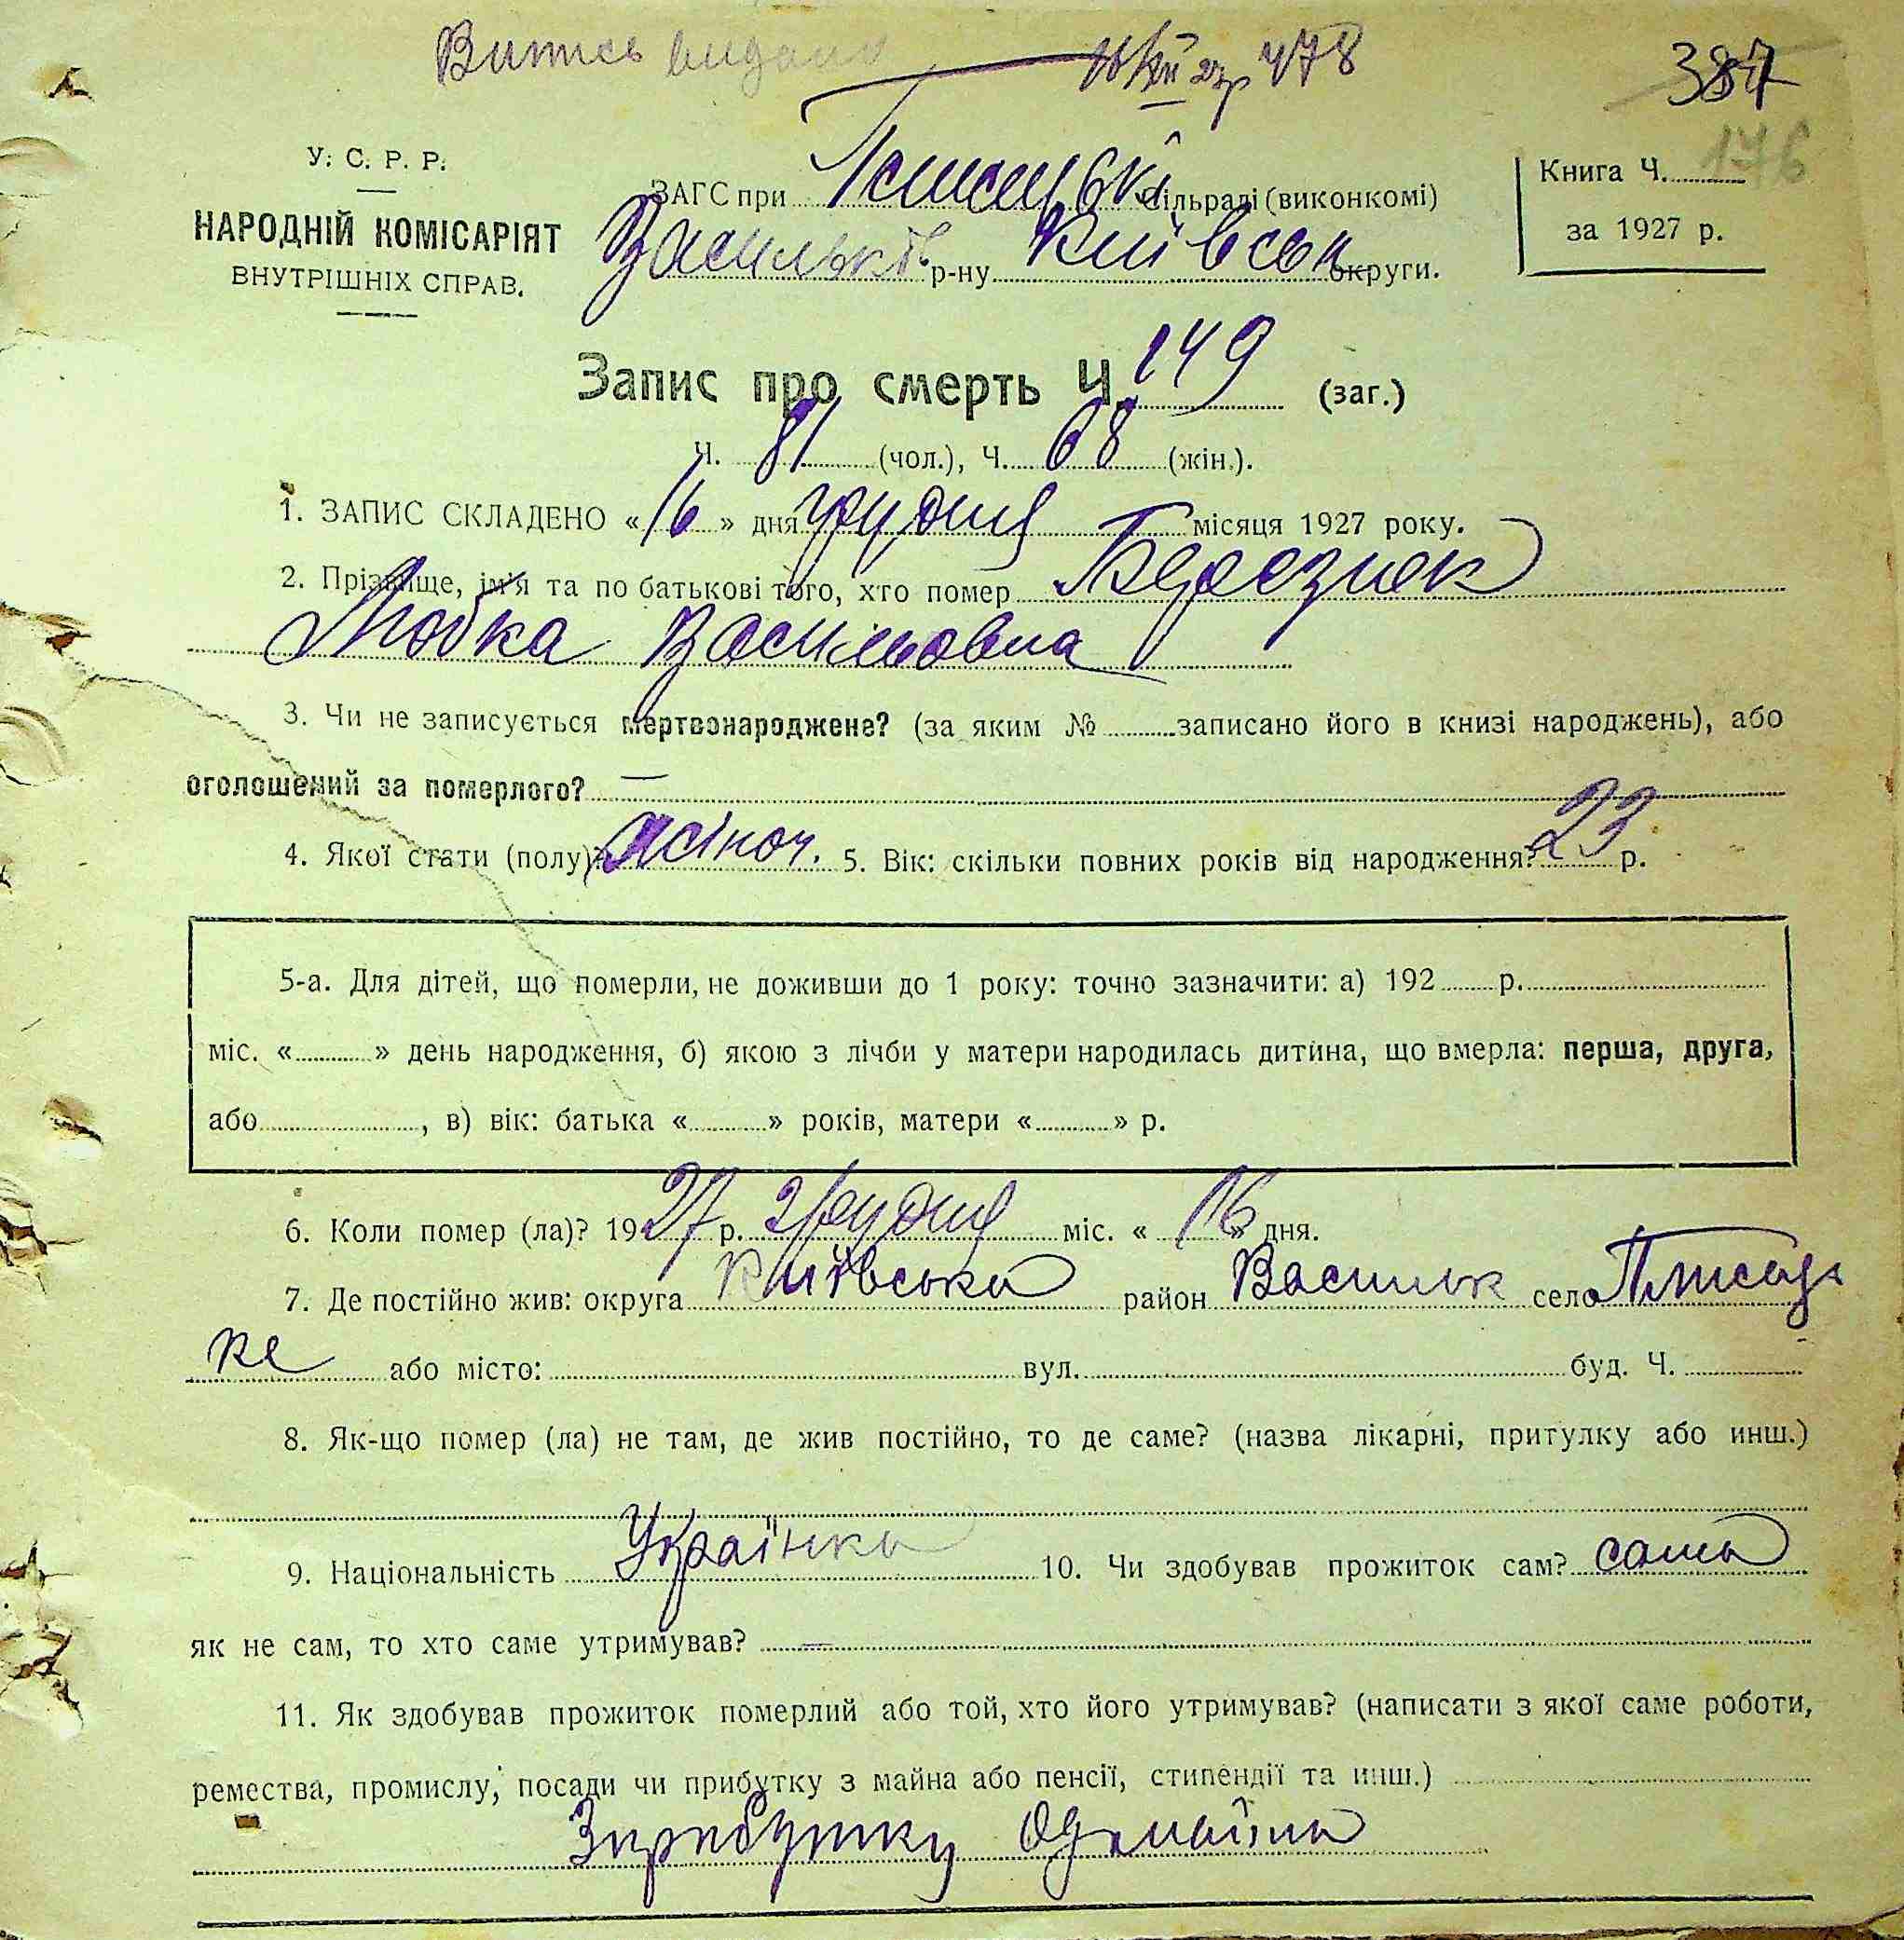 Випись видано 16/XII 27р 478
387
176
У. С. Р. Р.
НАРОДНІЙ КОМІСАРІЯТ
ВНУТРІШНІХ СПРАВ.
ЗАГС при сільраді (виконкомі)
Васильків. р-ну Київськ округи.
Книга Ч.
за 1927 р.
Запис про смерть Ч. 149 (заг.)
Ч. 81 (чол.), Ч. 68 (жін.).
1. ЗАПИС СКЛАДЕНО « 16 » дня грудня місяця 1927 року.
2. Прізвище, ім'я та по батькові того, хто помер
Любка Васильовна
3. Чи не записується мертвонароджене? (за яким № записано його в книзі народжень), або
оголошений за померлого? —
4. Якої стати (полу)? жіноч. 5. Вік: скільки повних років від народження? 23 р.
5-а. Для дітей, що померли, не доживши до 1 року: точно зазначити: а) 192 р.
міс. « » день народження, б) якою з лічби у матери народилась дитина, що вмерла: перша, друга,
або , в) вік: батька « » років, матери « » р.
6. Коли помер (ла)? 1927 р. грудня міс. « 16 » дня.
7. Де постійно жив: округа Київська район Васильк село Плисець
ке або місто: вул. буд. Ч.
8. Як-що помер (ла) не там, де жив постійно, то де саме? (назва лікарні, притулку або инш.)
9. Національність Українка 10. Чи здобував прожиток сам? сама
як не сам, то хто саме утримував? —
11. Як здобував прожиток померлий або той, хто його утримував? (написати з якої саме роботи,
ремества, промислу, посади чи прибутку з майна або пенсії, стипендії та инш.)
Зприбутку од майна